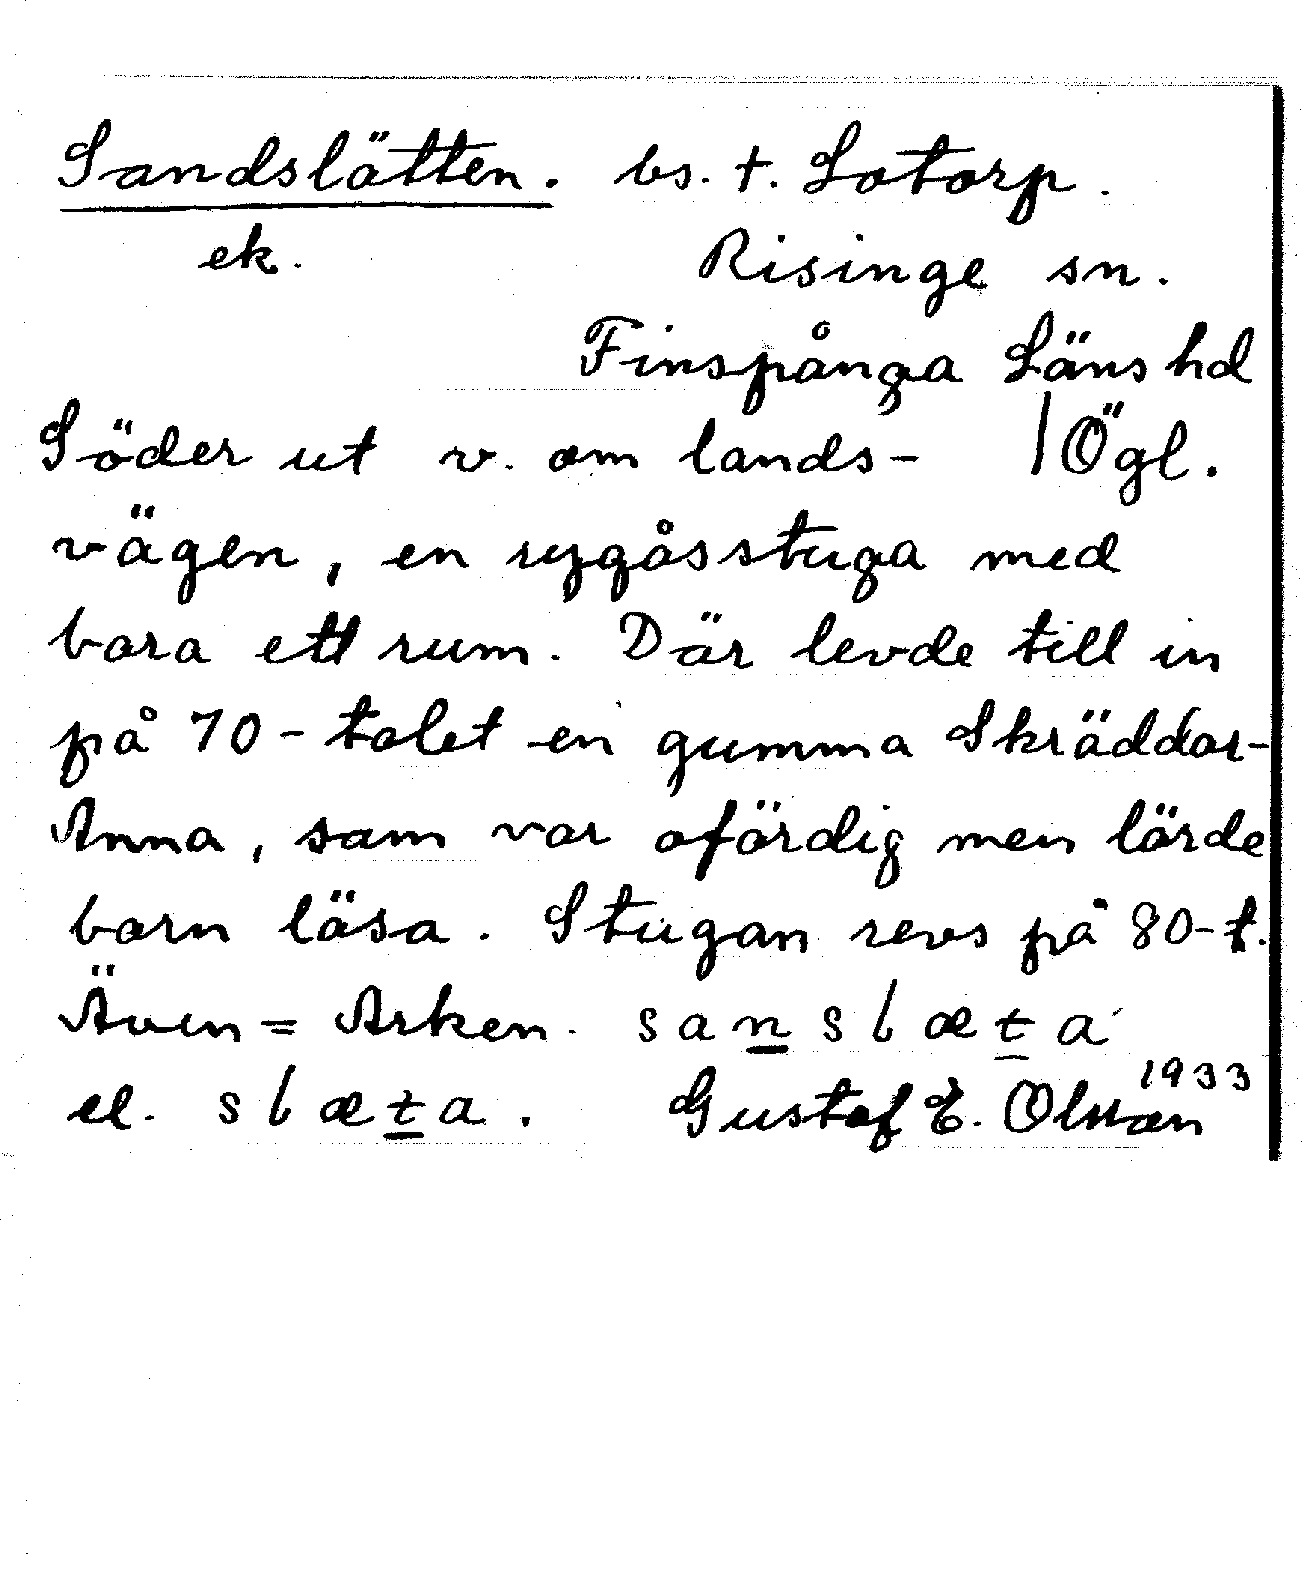 Sandslätten. bs. t. Lotorp.
ek. Risinge sn.
Finspånga Läns hd
Söder ut v. om lands- | Ögl.
vägen, en rygåsstuga med
bara ett rum. Där levde till in
på 70-talet en gumma Skräddar-
Anna, som var ofärdig men lärde
barn läsa. Stugan revs på 80-t.
Även = Arken. sanslæta
el. slæta. Gustaf E. Olsson 1933